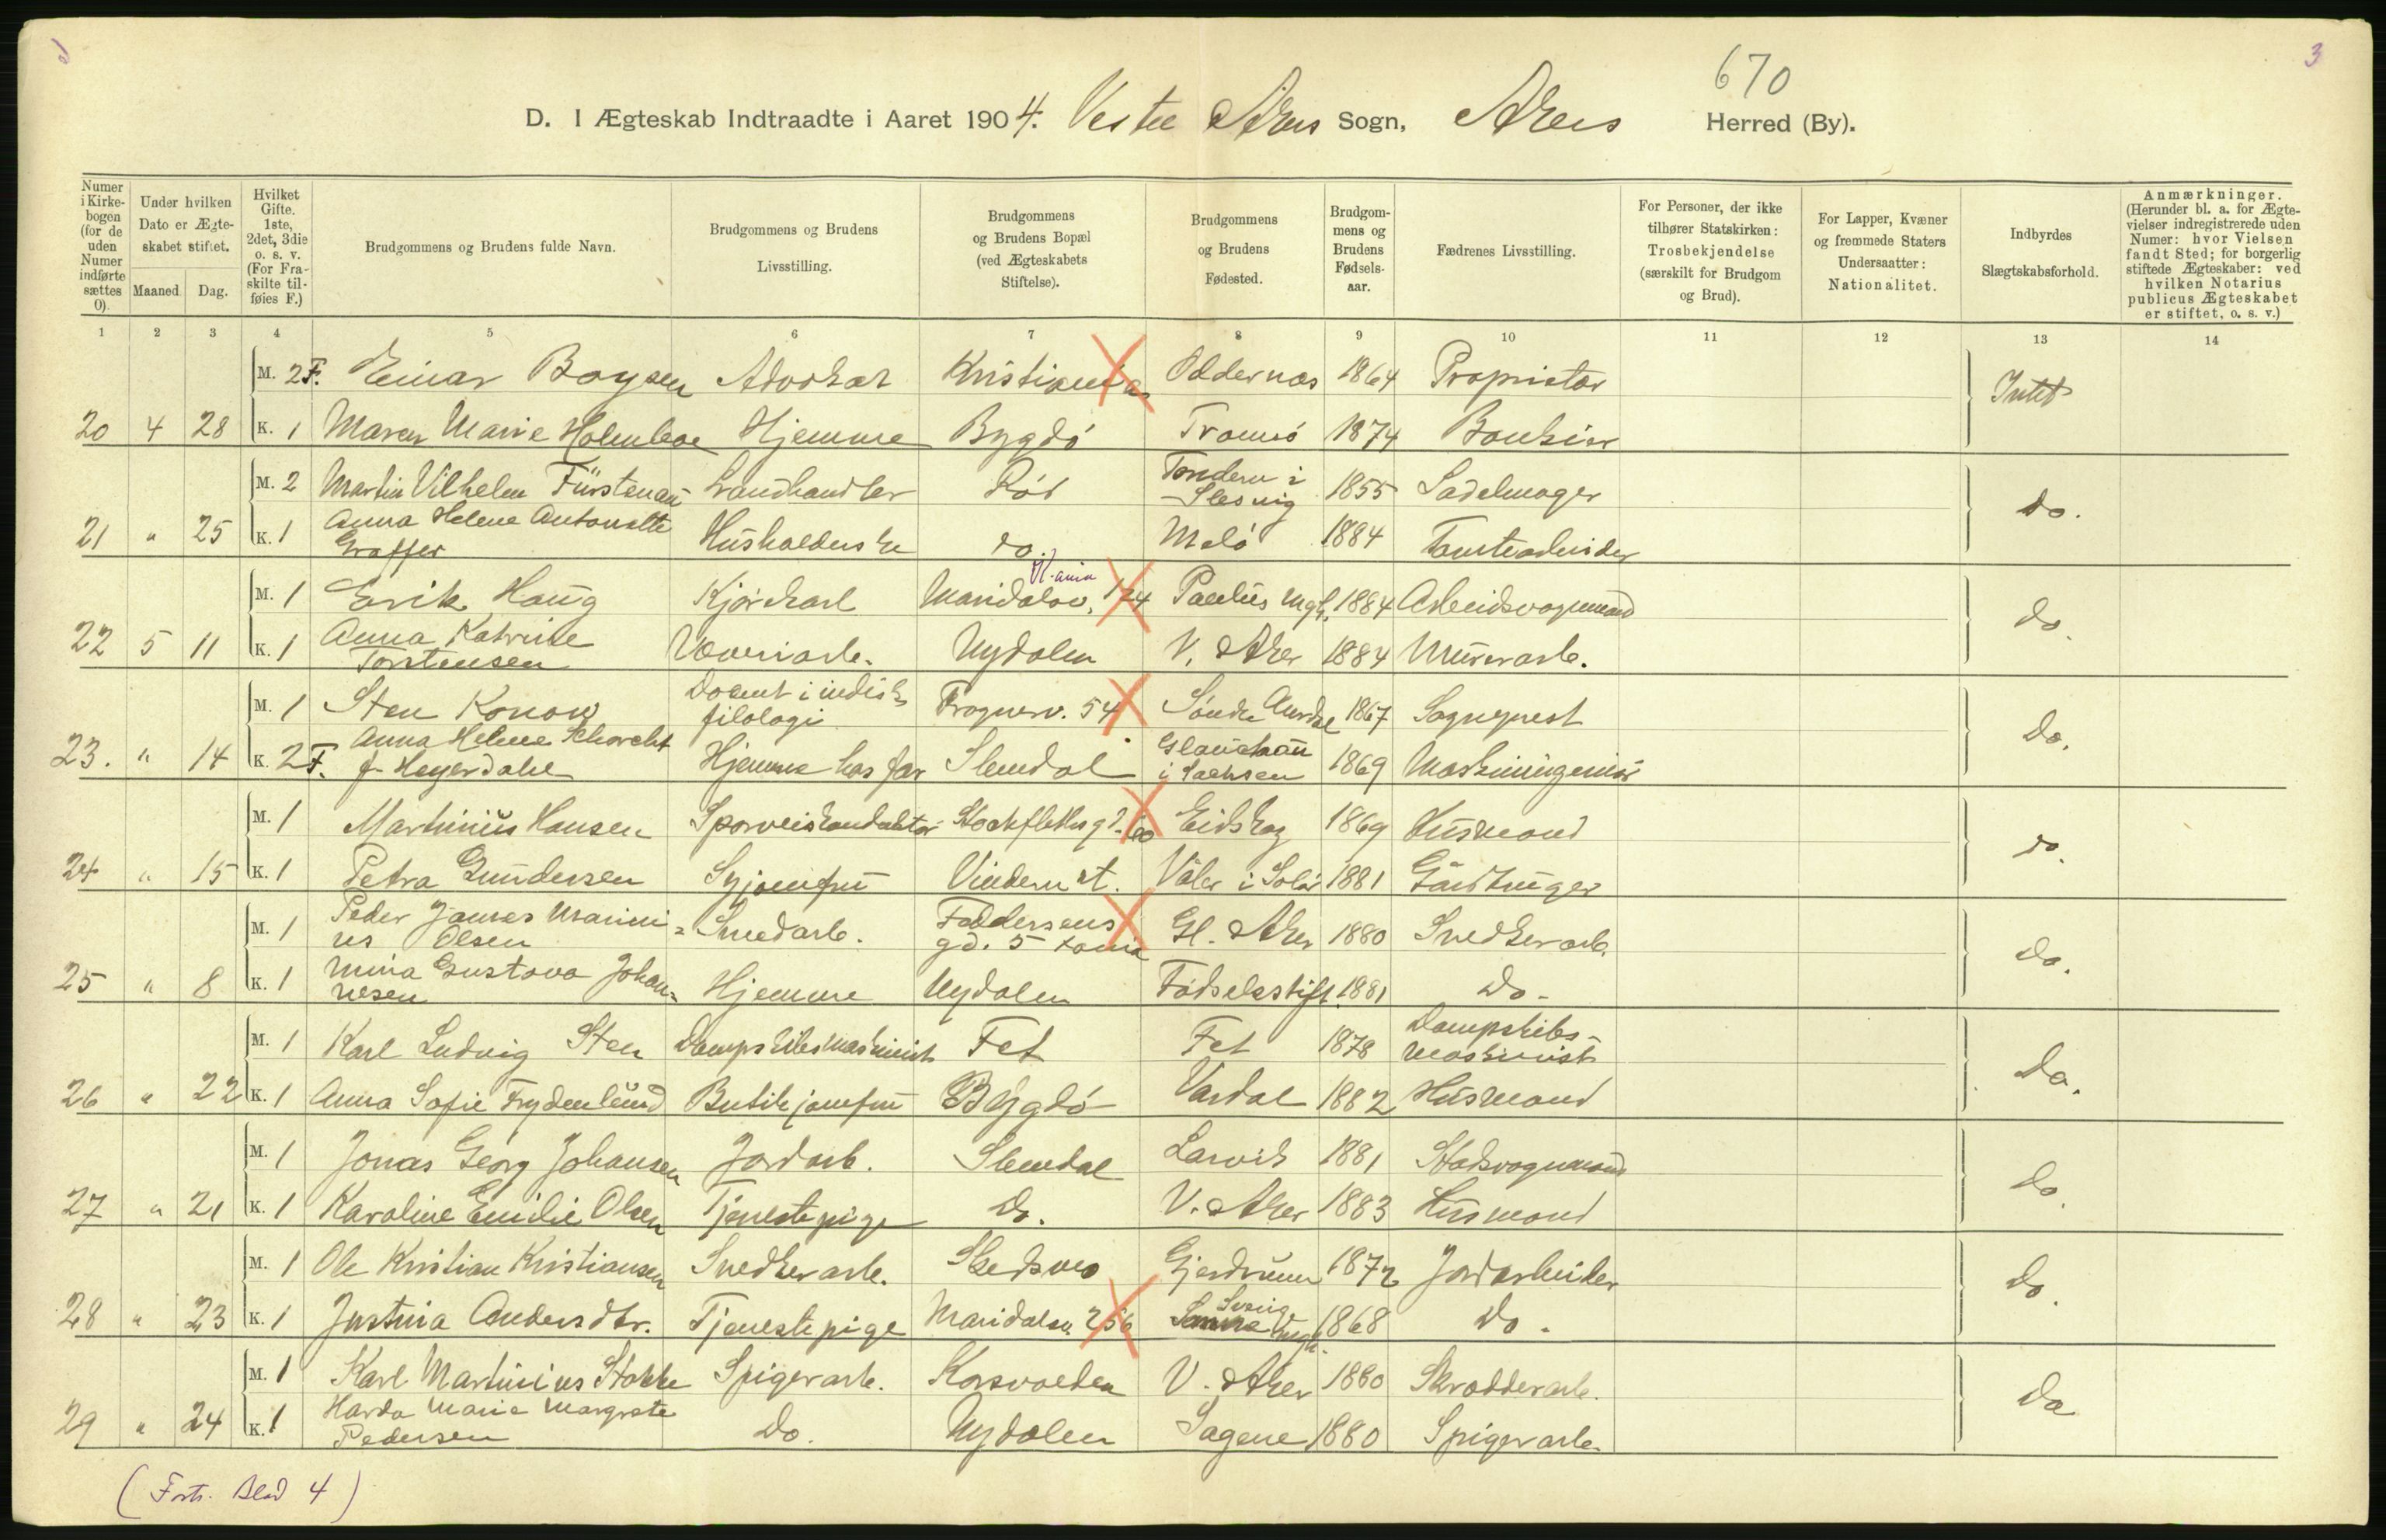 670
3
D. I Ægteskab Indtraadte i Aaret 1904. Vestre Akers Sogn, Akers Herred (By).
Numer i Kirkebogen (for de uden Numer indførte sættes 0).
Under hvilken Dato er Ægteskabet stiftet.
Maaned
Dag.
Hvilket Gifte. 1ste, 2det, 3die o. s. v. (For Fraskilte tilføies F.)
Brudgommens og Brudens fulde Navn.
Brudgommens og Brudens Livsstilling.
Brudgommens og Brudens Bopæl (ved Ægteskabets Stiftelse).
Brudgommens og Brudens Fødested.
Brudgommens og Brudens Fødselsaar.
Fædrenes Livsstilling.
For Personer, der ikke tilhører Statskirken: Trosbekjendelse (særskilt for Brudgom og Brud).
For Lapper, Kvæner og fremmede Staters Undersaatter: Nationalitet.
Indbyrdes Slægtskabsforhold.
Anmærkninger. (Herunder bl. a. for Ægtevielser indregistrerede uden Numer: hvor Vielsen fandt Sted; for borgerlig stiftede Ægteskaber: ved hvilken Notarius publicus Ægteskabet er stiftet, o. s. v.)
1 2 3 4 5 6 7 8 9 10 11 12 13 14
M. 2F. Einar Boysen Advokat Kristiania Oddernæs 1864 Proprietær Intet
20 4 28 K. 1 Maren Marie Holmboe Hjemme Bygdö Tromsö 1874 Bankier
M. 2 Martin Vilhelm Fürstenau Landhandler Röd Tondern i Slesvig 1855 Sadelmager do.
21 " 25 K. 1 Anna Helene Antonette Graffer Husholderske do. Melö 1884 Tomtearbeider
M. 1 Erik Haug Kjörekarl Maridalsv. 124 K.ania Paulus Mgh. 1884 Arbeidsvognmand do.
22 5 11 K. 1 Anna Katrine Torstensen Væveriarb. Nydalen V. Aker 1884 Murerarb.
M. 1 Sten Konow Docent i indisk filologi Frognerv. 54 Söndre Aurdal 1867 Sogneprest Do.
23. " 14 K. 2F. Anna Helene Schorcht f. Heyerdahl Hjemme hos far Slemdal Glauchau i Sachsen 1869 Maskiningeniör
M. 1 Martinius Hansen Sporveiskonduktör Stockflethsg. Eidskog 1869 Husmand do.
24 " 15 K. 1 Petra Gundersen Syjomfru Vindern st. Våler i Solör 1881 Gårdbruger
M. 1 Peder James Marinius Olsen Smedarb. Feddersens gd. 5 Kania Gl. Aker 1880 Snedkerarb. Do.
25 " 8 K. 1 Mina Gustava Johannesen Hjemme Nydalen Födselsstift. 1881 Do.
M. 1 Karl Ludvig Sten Dampskibsmaskinist Fet Fet 1878 Dampskibsmaskinist Do.
26 " 22 K. 1 Anna Sofie Frydenlund Butikjomfru Bygdö Vardal 1882 Husmand
M. 1 Jonas Georg Johansen Jordarb. Slemdal Larvik 1881 Stadsvognmand Do.
27 " 21 K. 1 Karoline Emilie Olsen Tjenestepige Do. V. Aker 1883 Husmand
M. 1 Ole Kristian Kristiansen Snedkerarb. Skedsmo Gjerdrum 1872 Jordarbeider Do.
28 " 23 K. 1 Justina Andersdtr. Tjenestepige Maridalsv. 256 1868 Do.
M. 1 Karl Martinius Stokke Spigerarb. Korsvolden V. Aker 1880 Skrædderarb. Do
29 " 24 K. 1 Harda Marie Margrete Pedersen Do. Nydalen Sagene 1880 Spigerarb.
(Forts. Blad 4)